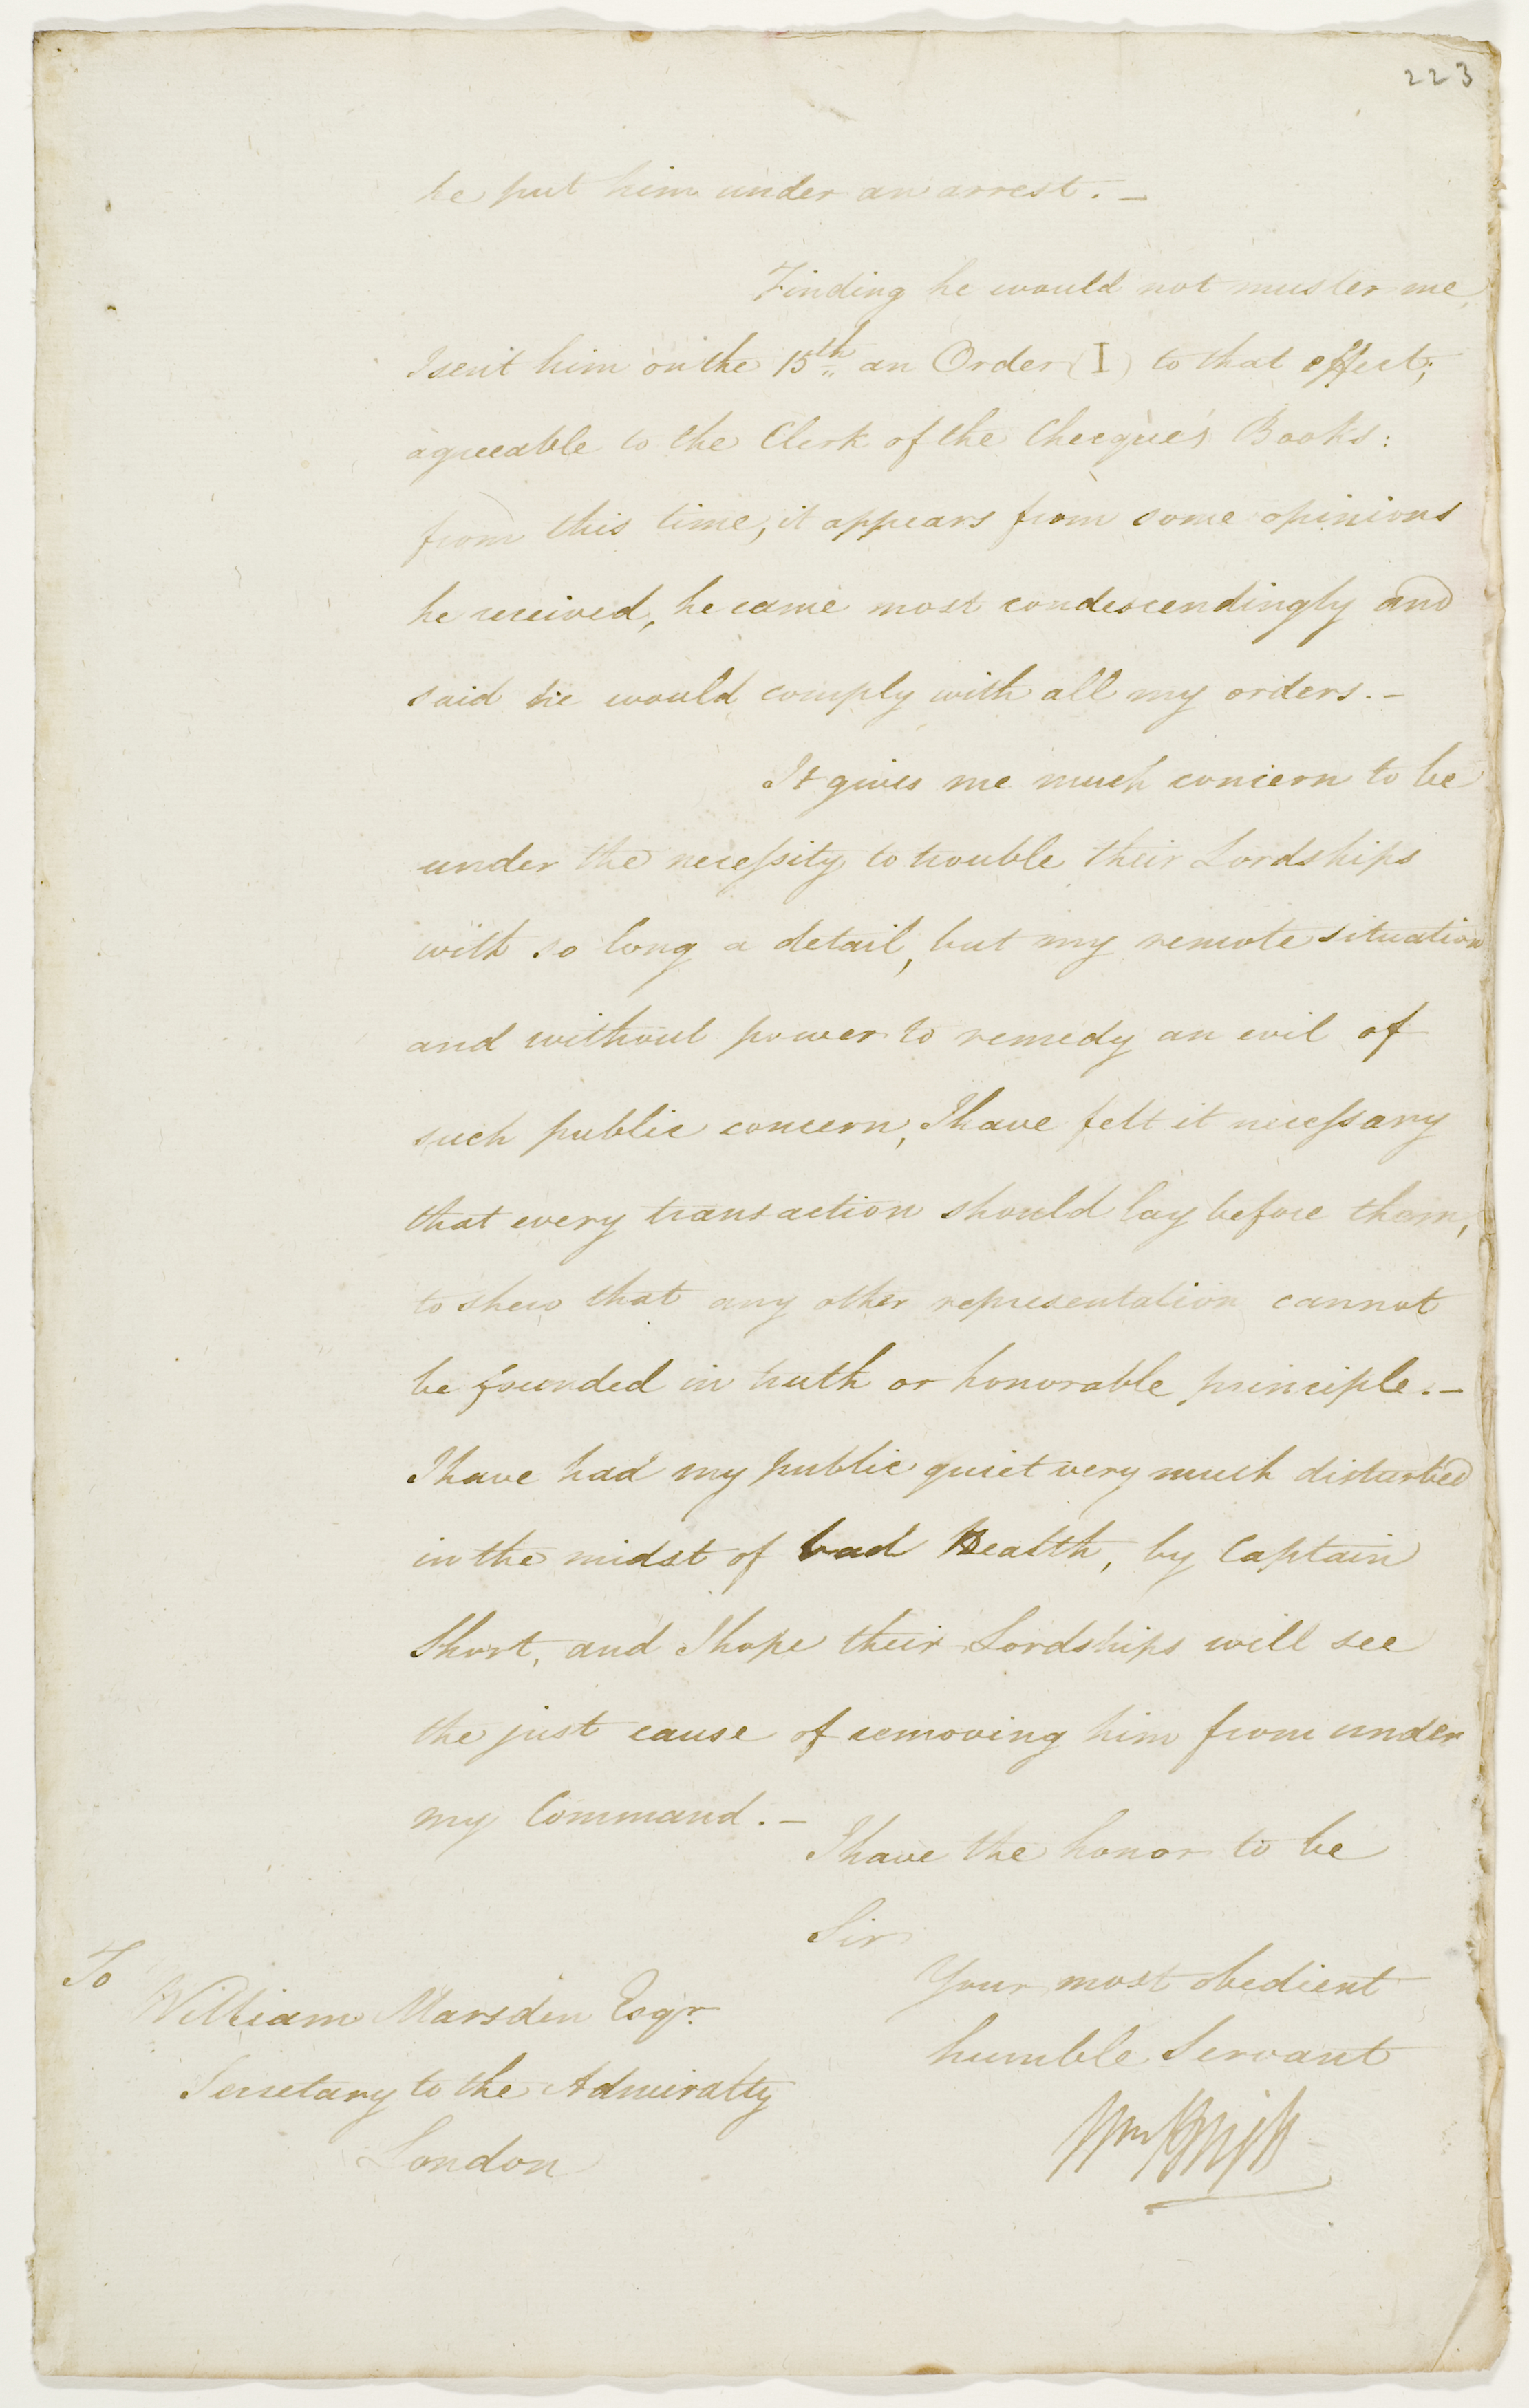 223
he put him under an arrest. –
Finding he would not muster me,
I sent him on the 15th an Order (I) to that effect;
agreeable to the Clerk of the Cheque's Books:
from this time, it appears from some opinions
he received, he came most condescendingly and
said he would comply with all my orders. –
It gives me much concern to be
under the neceſsity to trouble their Lordships
with so long a detail, but my remote situation
and without power to remedy an evil of
such public concern, I have felt it neceſsary
that every transaction should lay before them,
to shew that any other representation cannot
be founded in truth or honorable principle. –
I have had my public quiet very much disturbed
in the midst of bad Health, by Captain
Short, and I hope their Lordships will see
the just cause of removing him from under
my Command. –
I have the honor to be
Sir
Your most obedient
humble Servant
Wm Bligh
To
William Marsden Esqr.
Secretary to the Admiralty
London